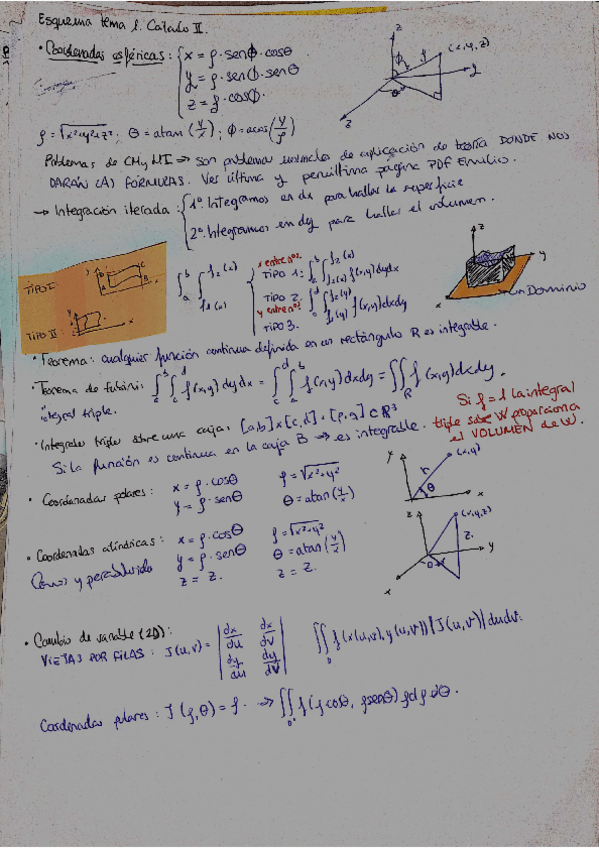 Esquema tema 1. Calculo II.
• Coordenadas esféricas: { x = ρ · senϕ · cosθ
y = ρ · senϕ · senθ
z = ρ · cosϕ.
z
(x,y,z)
y
ρ = √x²+y²+z² ; θ = atan (y/x) ; ϕ = acos(
Problemas de CM y MI ⇒ son problema de aplicación de teoría DONDE NOS
DARÁN (A) FÓRMULAS. Ver última y penúltima página PDF Emilio.
→ Integración iterada: { 1º. Integramos en dx para hallar la superficie
2º. Integramos en dy para hallar el volumen.
TIPO I:
TIPO II:
∫ₐᵇ ∫ f₂(x) f₁(x)
x entre nos
TIPO 1: ∫ₐᵇ ∫ f₂(x) f₁(x) f(x,y)dydx
TIPO 2:
y entre nos
∫ f₂(y) f₁(y) f(x,y)dxdy
TIPO 3.
z
y
x
Dominio
• Teorema: cualquier función continua definida en un rectángulo R es integrable.
• Teorema de Fubini: ∫ₐᵇ ∫ f(x,y) dydx = ∫ ∫ₐᵇ f(x,y)dxdy = ∫∫_R f(x,y)dxdy.
integral triple.
• Integrales triple sobre una caja: [a,b]×[c,d]×[p,q] ⊂ R³
Si la función es continua en la caja B ⇒ es integrable.
Si f = 1 la integral
triple sobre W proporciona
el VOLUMEN de W.
• Coordenadas polares: x = ρ · cosθ ρ = √x²+y²
y = ρ · senθ θ = atan(y/x)
y
(x,y)
r
θ
x
• Coordenadas cilíndricas: x = ρ · cosθ ρ = √x²+y²
y = ρ · senθ θ = atan(y/x)
Conos y z = z. z = z.
z
(x,y,z)
z.
y
x
• Cambio de variable (2D):
VIEJAS POR FILAS: J(u,v) = | dx/du dx/dv |
| dy/du dy/dv |
∫∫_D f(x(u,v), y(u,v)) |J(u,v)| dudv.
Coordenadas polares: J(ρ,θ) = ρ. → ∫∫_D* f(ρcosθ, ρsenθ) ρdρdθ.